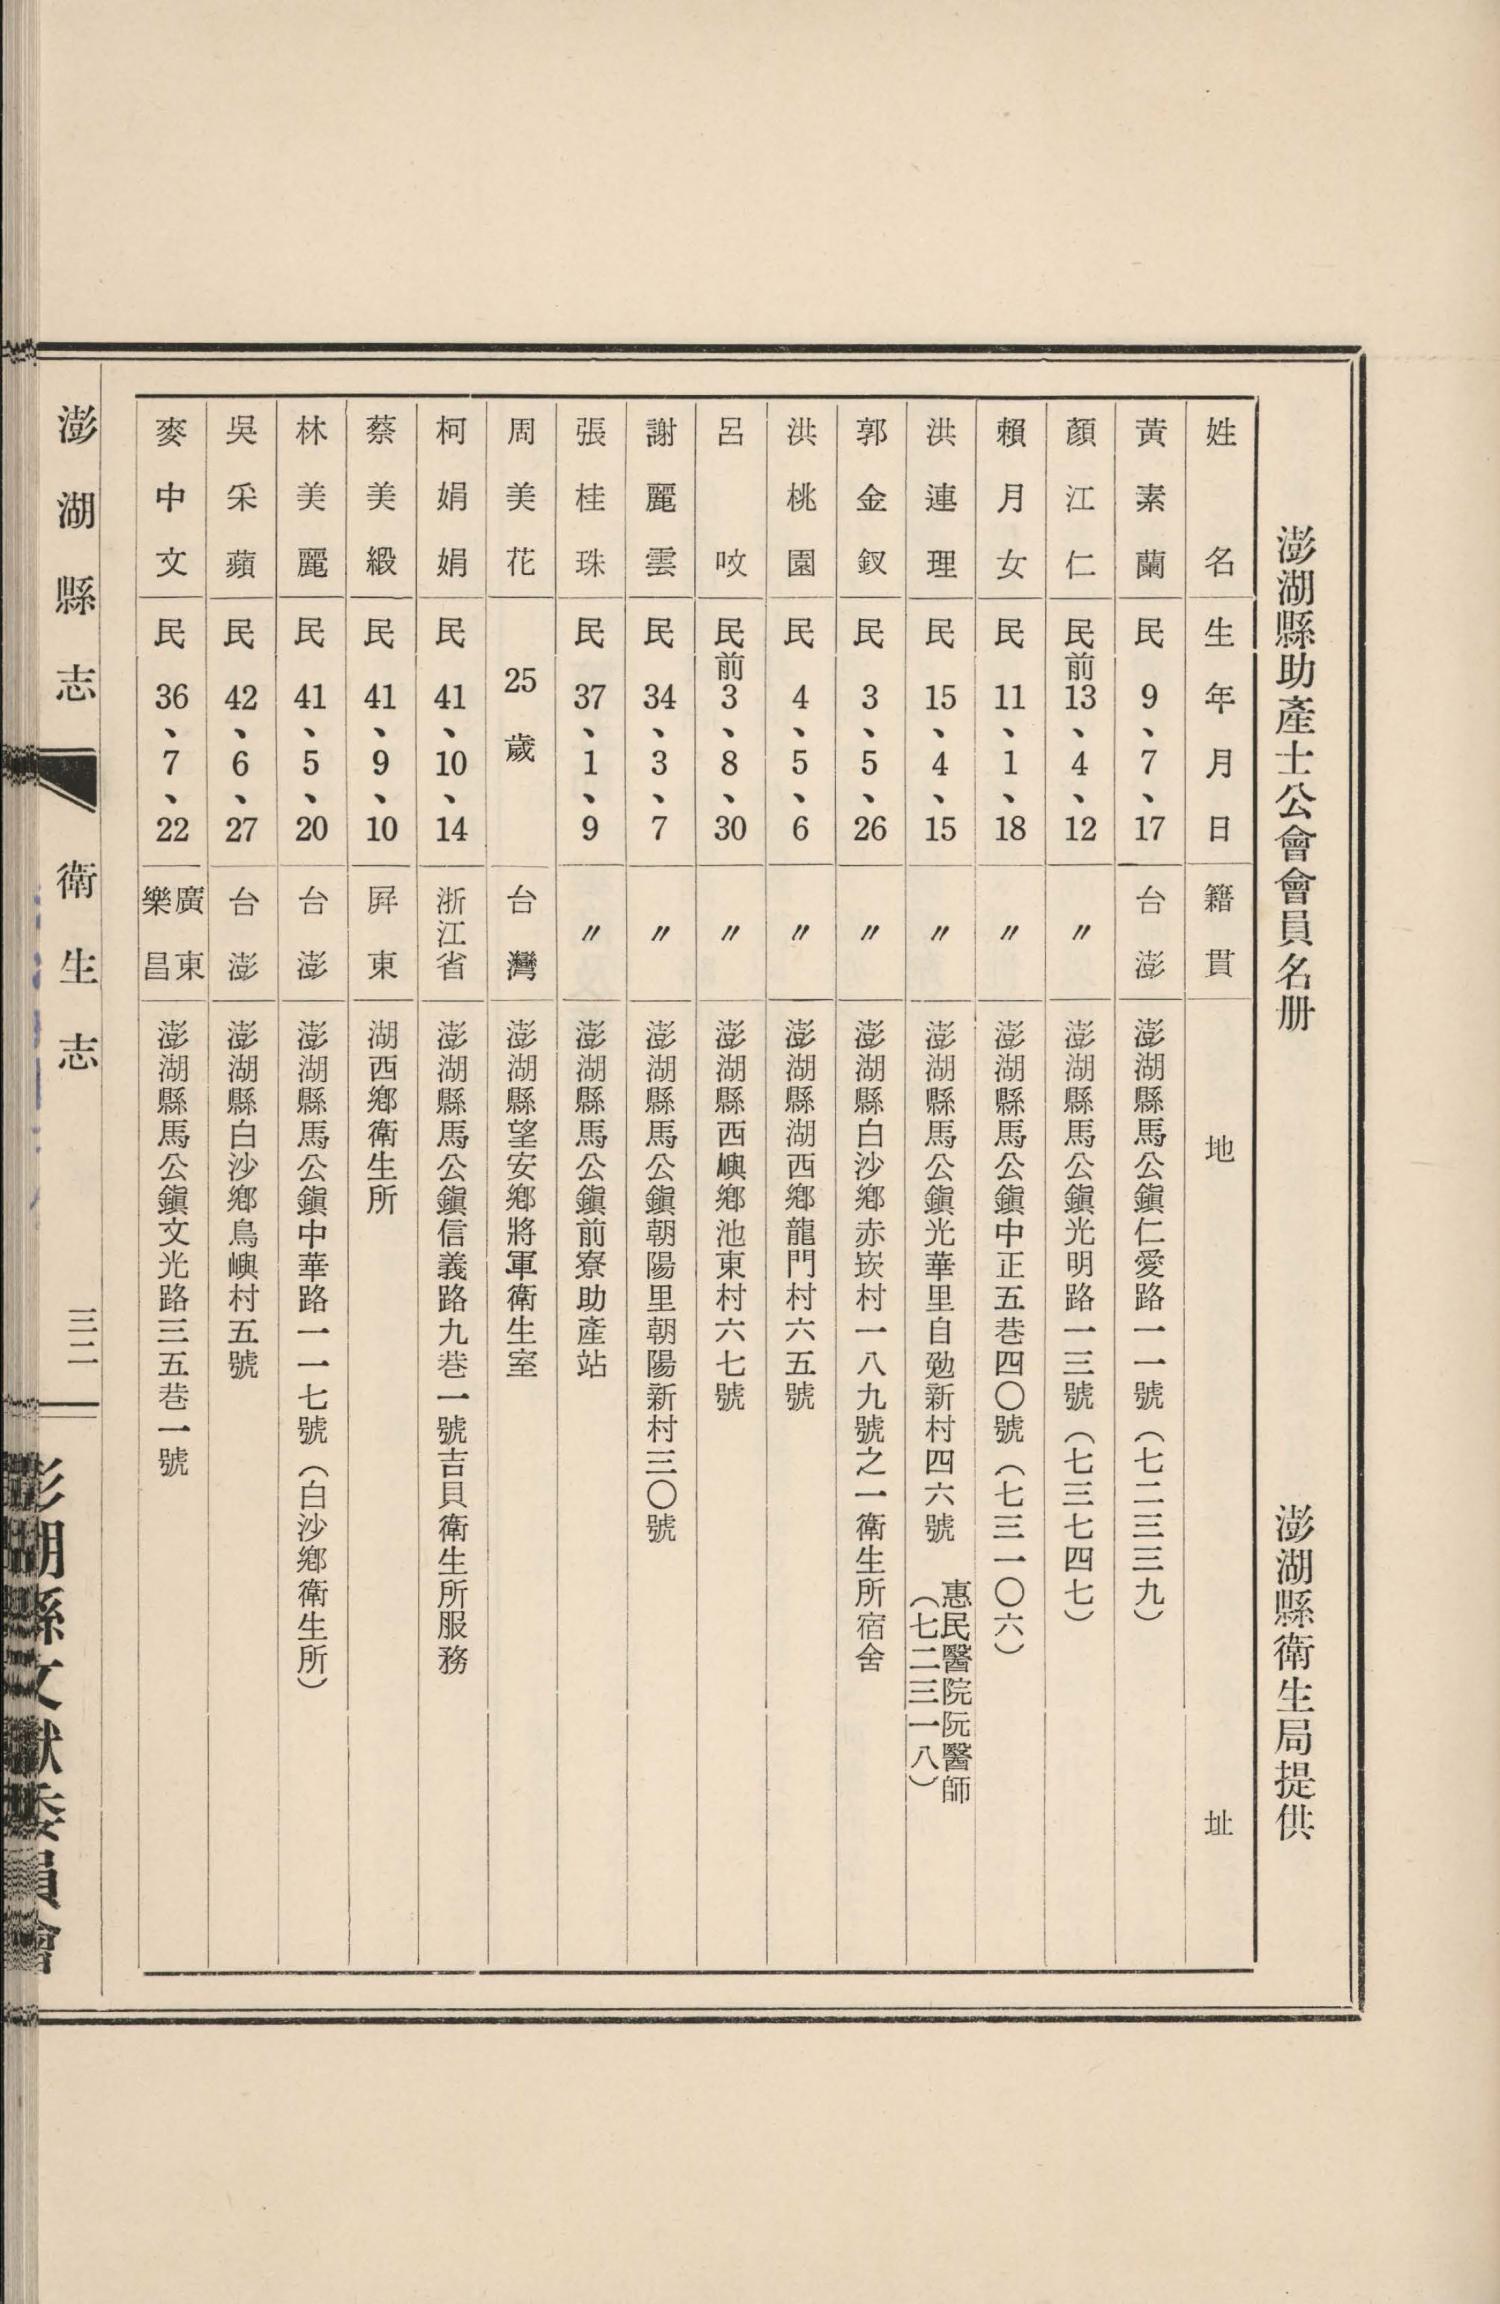 澎湖縣助產士公會會員名册　澎湖縣衛生局提供
姓名　生年月日　籍貫　地址
黃素蘭　民9、7、17　台澎　澎湖縣馬公鎭仁愛路一一號（七二三三九）
顏江仁　民前13、4、12　〃　澎湖縣馬公鎭光明路一三號（七三七四七）
賴月女　民11、1、18　〃　澎湖縣馬公鎭中正五巷四〇號（七三一〇六）
洪連理　民15、4、15　〃　澎湖縣馬公鎭光華里自勉新村四六號　惠民醫院阮醫師（七二三一八）
郭金釵　民3、5、26　〃　澎湖縣白沙鄉赤崁村一八九號之一衛生所宿舍
洪桃園　民4、5、6　〃　澎湖縣湖西鄉龍門村六五號
呂咬　民前3、8、30　〃　澎湖縣西嶼鄉池東村六七號
謝麗雲　民34、3、7　〃　澎湖縣馬公鎭朝陽里朝陽新村三〇號
張桂珠　民37、1、9　〃　澎湖縣馬公鎭前寮助產站
周美花　25歲　台灣　澎湖縣望安鄉將軍衛生室
柯娟娟　民41、10、14　浙江省　澎湖縣馬公鎭信義路九巷一號吉貝衛生所服務
蔡美緞　民41、9、10　屛東　湖西鄉衛生所
林美麗　民41、5、20　台澎　澎湖縣馬公鎭中華路一一七號（白沙鄉衛生所）
吳釆蘋　民42、6、27　台澎　澎湖縣白沙鄉鳥嶼村五號
麥中文　民36、7、22　廣東樂昌　澎湖縣馬公鎭文光路三五巷一號
澎湖縣志　衛生志　三二
澎湖縣文獻委員會